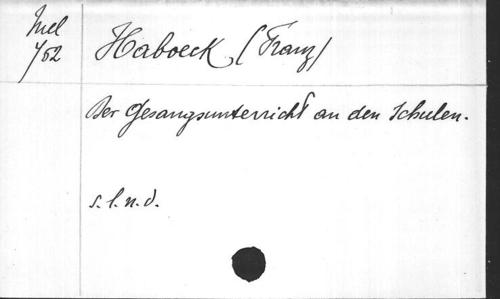 Mel
752
Haboeck, (Franz)
Der Gesangsunterricht an den Schulen.
s. l. n. d.